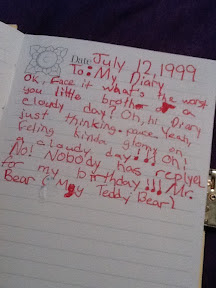 Date: July 12, 1999
To: My Diary
Ok, Face it what's the worst
you little brother or a
cloudy day? Oh, hi Diary
just thinking. Yeah,
Feling kinda glomy on
a cloudy day!!! Oh!
No! Nobody has replyel
for my birthday!!! Mr.
Bear (My Teddy Bear)